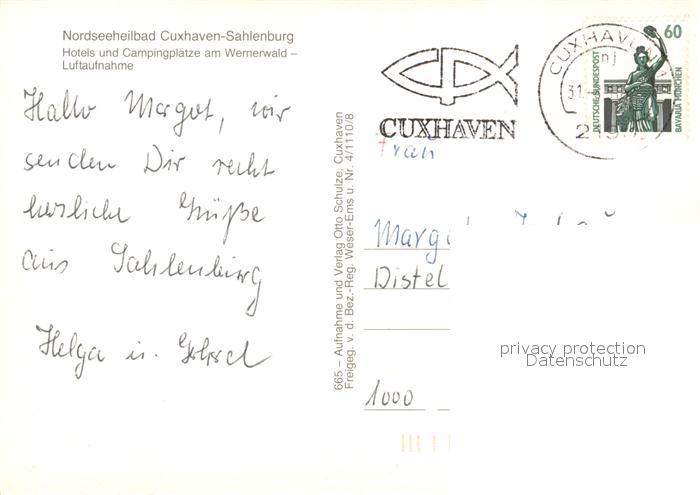 Nordseeheilbad Cuxhaven-Sahlenburg
Hotels und Campingplätze am Wernerwald –
Luftaufnahme
Hallo Margot, wir
senden Dir recht
herzliche Grüße
aus Sahlenburg
Helga u.
665 – Aufnahme und Verlag Otto Schulze, Cuxhaven
Freigeg. v. d. Bez.-Reg. Weser-Ems u. Nr. 4/1110/8
CUXHAVEN
CUXHAVEN
31.
60
DEUTSCHE BUNDESPOST
BAVARIA MÜNCHEN
Frau
Margo
Distel
privacy protection
Datenschutz
1000